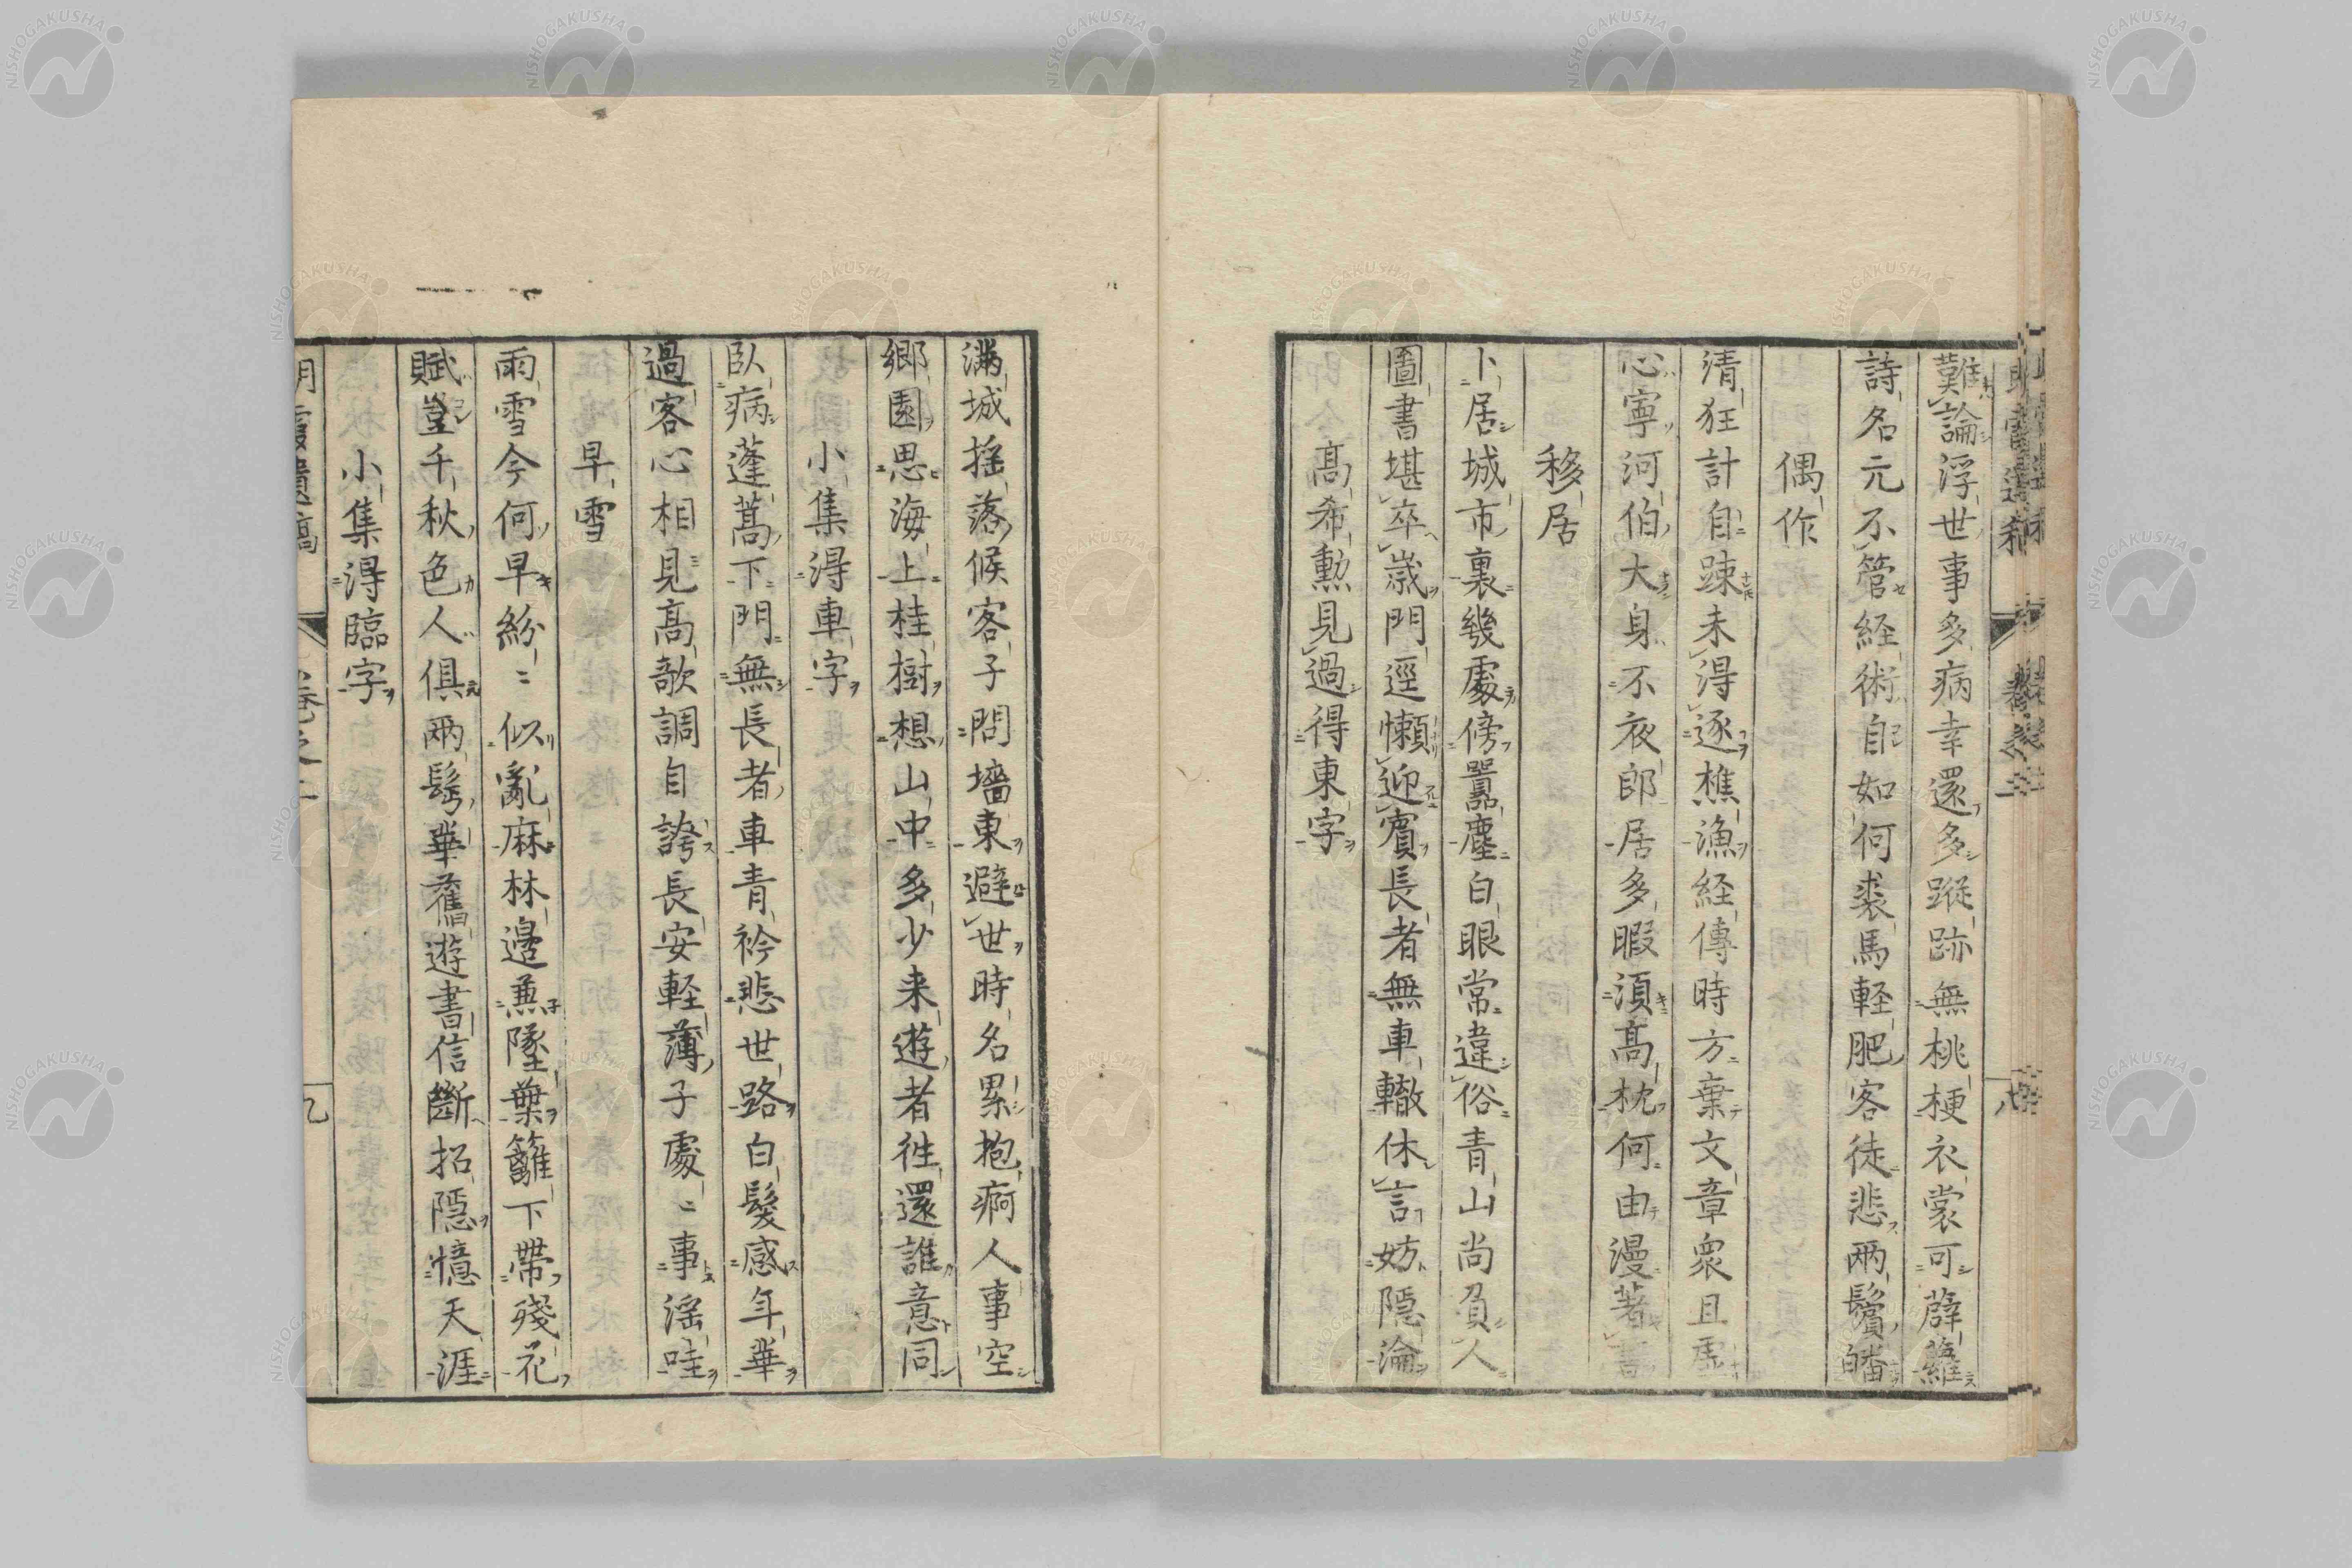 難論浮世事多病幸還多蹤跡無桃梗衣裳可薜蘿
詩名元不管経術自如何裘馬軽肥客徒悲兩鬢皤
偶作
清狂計自踈未得逐樵漁経傳時方棄文章衆且虚
心寧河伯大身不夜郎居多暇須高枕何由漫著書
移居
卜居城市裏幾處傍囂塵白眼常違俗青山尚負人
圖書堪卒歳門逕懶迎賓長者無車轍休言妨隠淪
高希勲見過得東字
滿城揺落候客子問墻東避世時名累抱痾人事空
郷園思海上桂樹想山中多少来遊者徃還誰意同
小集得車字
臥病蓬蒿下門無長者車青衿悲世路白髪感年華
過客心相見高歌調自誇長安軽薄子處〻事滛哇
早雪
雨雪今何早紛〻似亂麻林邉兼墜葉籬下帶殘花
賦豈千秋色人俱兩髩華舊遊書信斷招隠憶天涯
小集得臨字